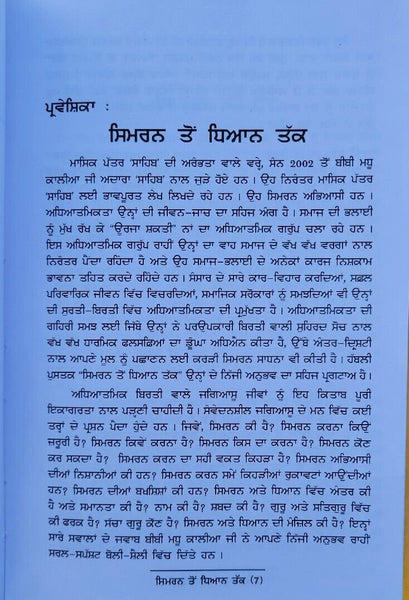 ਪ੍ਰਵੇਸ਼ਿਕਾ :
ਸਿਮਰਨ ਤੋਂ ਧਿਆਨ ਤੱਕ
ਮਾਸਿਕ ਪੱਤਰ 'ਸਾਹਿਬ' ਦੀ ਅਰੰਭਤਾ ਵਾਲੇ ਵਰ੍ਹੇ, ਸੰਨ 2002 ਤੋਂ ਬੀਬੀ ਮਧੂ
ਕਾਲੀਆ ਜੀ ਅਦਾਰਾ 'ਸਾਹਿਬ' ਨਾਲ ਜੁੜੇ ਹੋਏ ਹਨ । ਉਹ ਨਿਰੰਤਰ ਮਾਸਿਕ ਪੱਤਰ
'ਸਾਹਿਬ' ਲਈ ਭਾਵਪੂਰਤ ਲੇਖ ਲਿਖਦੇ ਰਹੇ ਹਨ । ਉਹ ਸਿਮਰਨ ਅਭਿਆਸੀ ਹਨ ।
ਅਧਿਆਤਮਿਕਤਾ ਉਨ੍ਹਾਂ ਦੀ ਜੀਵਨ-ਜਾਚ ਦਾ ਸਹਿਜ ਅੰਗ ਹੈ । ਸਮਾਜ ਦੀ ਭਲਾਈ
ਨੂੰ ਮੁੱਖ ਰੱਖ ਕੇ “ਉਰਜਾ ਸ਼ਕਤੀ” ਨਾਂ ਦਾ ਅਧਿਆਤਮਿਕ ਗਰੁੱਪ ਚਲਾ ਰਹੇ ਹਨ ।
ਇਸ ਅਧਿਆਤਮਿਕ ਗਰੁੱਪ ਰਾਹੀਂ ਉਨ੍ਹਾਂ ਦਾ ਵਾਹ ਸਮਾਜ ਦੇ ਵੱਖ ਵੱਖ ਵਰਗਾਂ ਨਾਲ
ਨਿਰੰਤਰ ਪੈਂਦਾ ਰਹਿੰਦਾ ਹੈ ਅਤੇ ਉਹ ਸਮਾਜ-ਭਲਾਈ ਦੇ ਅਨੇਕਾਂ ਕਾਰਜ ਨਿਸ਼ਕਾਮ
ਭਾਵਨਾ ਤਹਿਤ ਕਰਦੇ ਰਹਿੰਦੇ ਹਨ । ਸੰਸਾਰ ਦੇ ਸਾਰੇ ਕਾਰ-ਵਿਹਾਰ ਕਰਦਿਆਂ, ਸਫ਼ਲ
ਪਰਿਵਾਰਿਕ ਜੀਵਨ ਵਿੱਚ ਵਿਚਰਦਿਆਂ, ਸਮਾਜਿਕ ਸਰੋਕਾਰਾਂ ਨੂੰ ਸਮਝਦਿਆਂ ਵੀ ਉਨ੍ਹਾਂ
ਦੀ ਸੁਰਤੀ-ਬਿਰਤੀ ਵਿੱਚ ਅਧਿਆਤਮਿਕਤਾ ਦੀ ਪ੍ਰਮੁੱਖਤਾ ਹੈ । ਅਧਿਆਤਮਿਕਤਾ ਦੀ
ਗਹਿਰੀ ਸਮਝ ਲਈ ਜਿੱਥੇ ਉਨ੍ਹਾਂ ਨੇ ਪਰਉਪਕਾਰੀ ਬਿਰਤੀ ਵਾਲੀ ਸੁਹਿਰਦ ਸੋਚ ਨਾਲ
ਵੱਖ ਵੱਖ ਧਾਰਮਿਕ ਫਲਸਫ਼ਿਆਂ ਦਾ ਡੂੰਘਾ ਅਧਿਐਨ ਕੀਤਾ ਹੈ, ਉੱਥੇ ਅੰਤਰ-ਦ੍ਰਿਸ਼ਟੀ
ਨਾਲ ਆਪਣੇ ਮੂਲ ਨੂੰ ਪਛਾਣਨ ਲਈ ਕਰੜੀ ਸਿਮਰਨ ਸਾਧਨਾ ਵੀ ਕੀਤੀ ਹੈ । ਹੱਥਲੀ
ਪੁਸਤਕ “ਸਿਮਰਨ ਤੋਂ ਧਿਆਨ ਤੱਕ” ਉਨ੍ਹਾਂ ਦੇ ਨਿੱਜੀ ਅਨੁਭਵ ਦਾ ਸਹਿਜ ਪ੍ਰਗਟਾਅ ਹੈ ।
ਅਧਿਆਤਮਿਕ ਬਿਰਤੀ ਵਾਲੇ ਜਗਿਆਸੂ ਜੀਵਾਂ ਨੂੰ ਇਹ ਕਿਤਾਬ ਪੂਰੀ
ਇਕਾਗਰਤਾ ਨਾਲ ਪੜ੍ਹਣੀ ਚਾਹੀਦੀ ਹੈ । ਸੰਵੇਦਨਸ਼ੀਲ ਜਗਿਆਸੂ ਦੇ ਮਨ ਵਿੱਚ ਕਈ
ਤਰ੍ਹਾਂ ਦੇ ਪ੍ਰਸ਼ਨ ਪੈਦਾ ਹੁੰਦੇ ਹਨ । ਜਿਵੇਂ, ਸਿਮਰਨ ਕੀ ਹੈ? ਸਿਮਰਨ ਕਰਨਾ ਕਿਉਂ
ਜਰੂਰੀ ਹੈ? ਸਿਮਰਨ ਕਿਵੇਂ ਕਰਨਾ ਹੈ? ਸਿਮਰਨ ਕਿਸ ਦਾ ਕਰਨਾ ਹੈ? ਸਿਮਰਨ ਕੌਣ
ਕਰ ਸਕਦਾ ਹੈ? ਸਿਮਰਨ ਕਰਨ ਦਾ ਸਹੀ ਵਕਤ ਕਿਹੜਾ ਹੈ? ਸਿਮਰਨ ਅਭਿਆਸੀ
ਦੀਆਂ ਨਿਸ਼ਾਨੀਆਂ ਕੀ ਹਨ? ਸਿਮਰਨ ਕਰਨ ਸਮੇਂ ਕਿਹੜੀਆਂ ਰੁਕਾਵਟਾਂ ਆਉਂਦੀਆਂ
ਹਨ? ਸਿਮਰਨ ਦੀਆਂ ਬਖਸ਼ਿਸ਼ਾਂ ਕੀ ਹਨ? ਸਿਮਰਨ ਅਤੇ ਧਿਆਨ ਵਿੱਚ ਅੰਤਰ ਕੀ
ਹੈ ਅਤੇ ਸਮਾਨਤਾ ਕੀ ਹੈ? ਨਾਮ ਕੀ ਹੈ? ਸ਼ਬਦ ਕੀ ਹੈ? ਗੁਰੂ ਅਤੇ ਸਤਿਗੁਰੂ ਵਿੱਚ
ਕੀ ਫਰਕ ਹੈ? ਸੱਚਾ ਗੁਰੂ ਕੌਣ ਹੈ? ਸਿਮਰਨ ਅਤੇ ਧਿਆਨ ਦੀ ਮੰਜ਼ਿਲ ਕੀ ਹੈ? ਇਨ੍ਹਾਂ
ਸਾਰੇ ਸਵਾਲਾਂ ਦੇ ਜਵਾਬ ਬੀਬੀ ਮਧੂ ਕਾਲੀਆ ਜੀ ਨੇ ਆਪਣੇ ਨਿੱਜੀ ਅਨੁਭਵ ਰਾਹੀਂ
ਸਰਲ-ਸਪੱਸ਼ਟ ਬੋਲੀ-ਸ਼ੈਲੀ ਵਿੱਚ ਦਿੱਤੇ ਹਨ ।
ਸਿਮਰਨ ਤੋਂ ਧਿਆਨ ਤੱਕ (7)